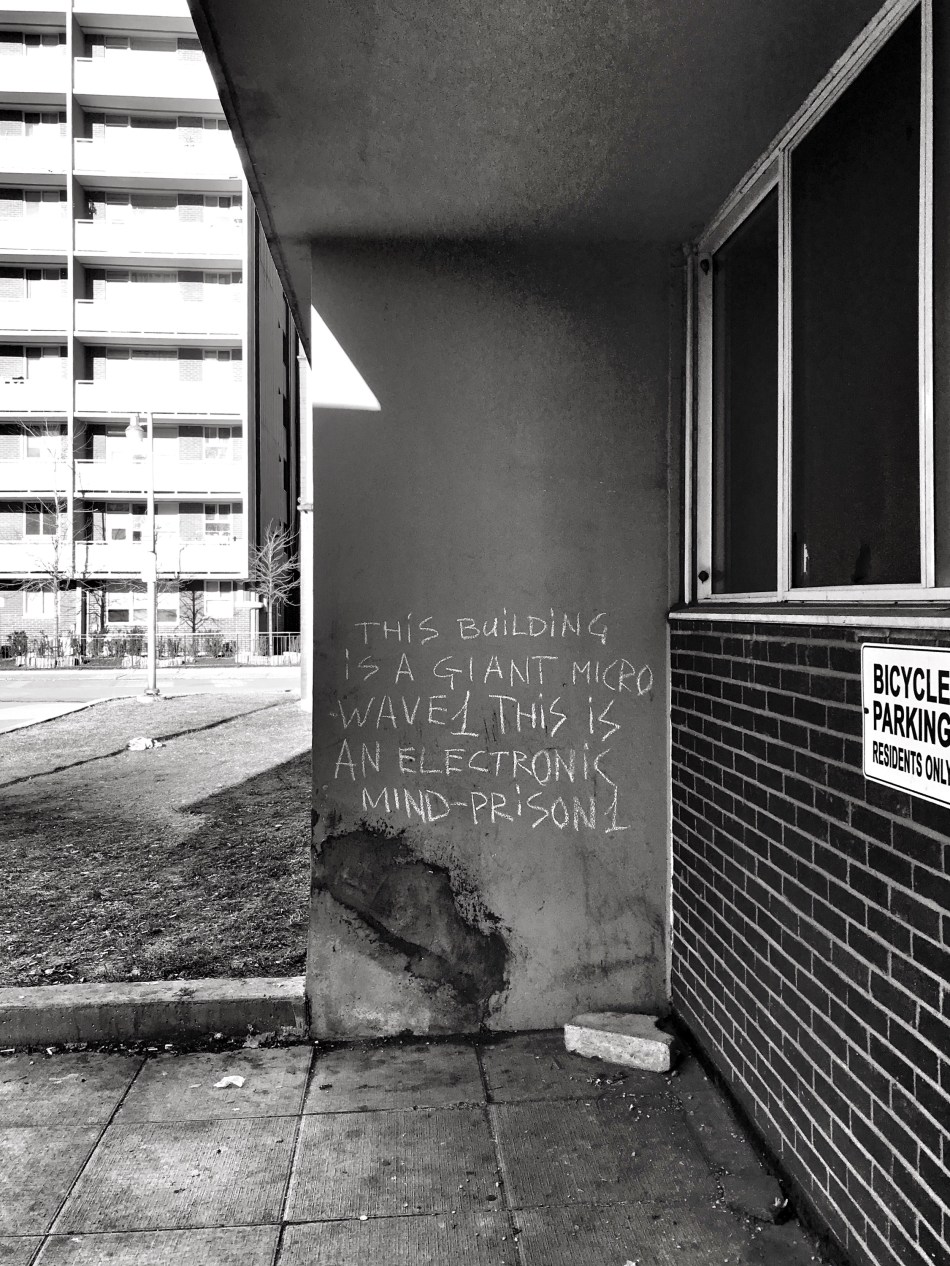 THiS BUiLDiNG
iS A GIANT MICRO
-WAVE1 THiS iS
AN ELECTRONiC
MIND-PRiSON1
BICYCLE
PARKING
RESIDENTS ONLY